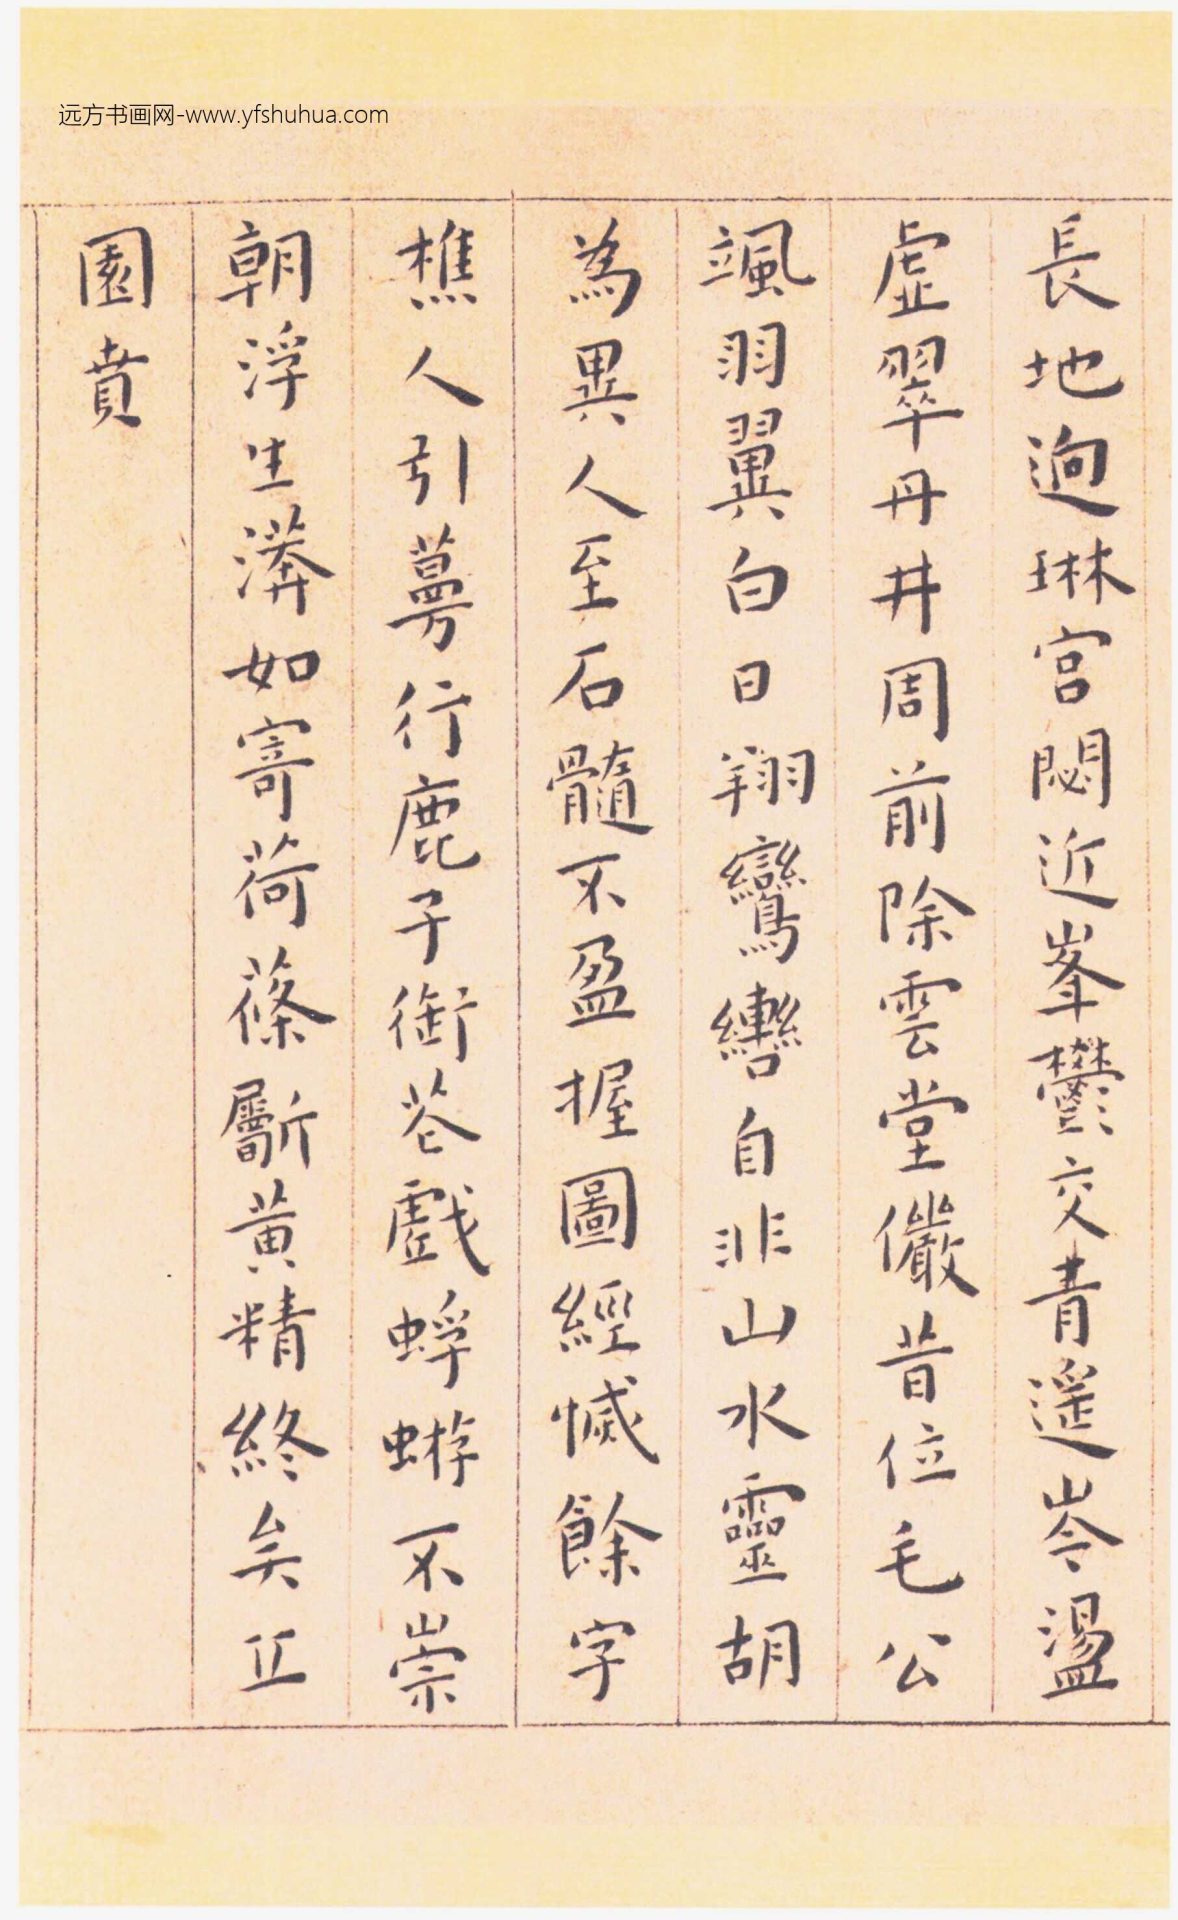 远方书画网-www.yfshuhua.com
長地迥琳宫閟近峯鬱交青遥岑盪
虚翠丹井周前除雲堂儼昔位毛公
颯羽翼白日翔鸞轡自非山水靈胡
為異人至石髓不盈握圖經慽餘字
樵人引蕚行鹿子銜花戲蜉蝣不崇
朝浮生溝如寄荷蓧斸黄精終矣丘
園賁